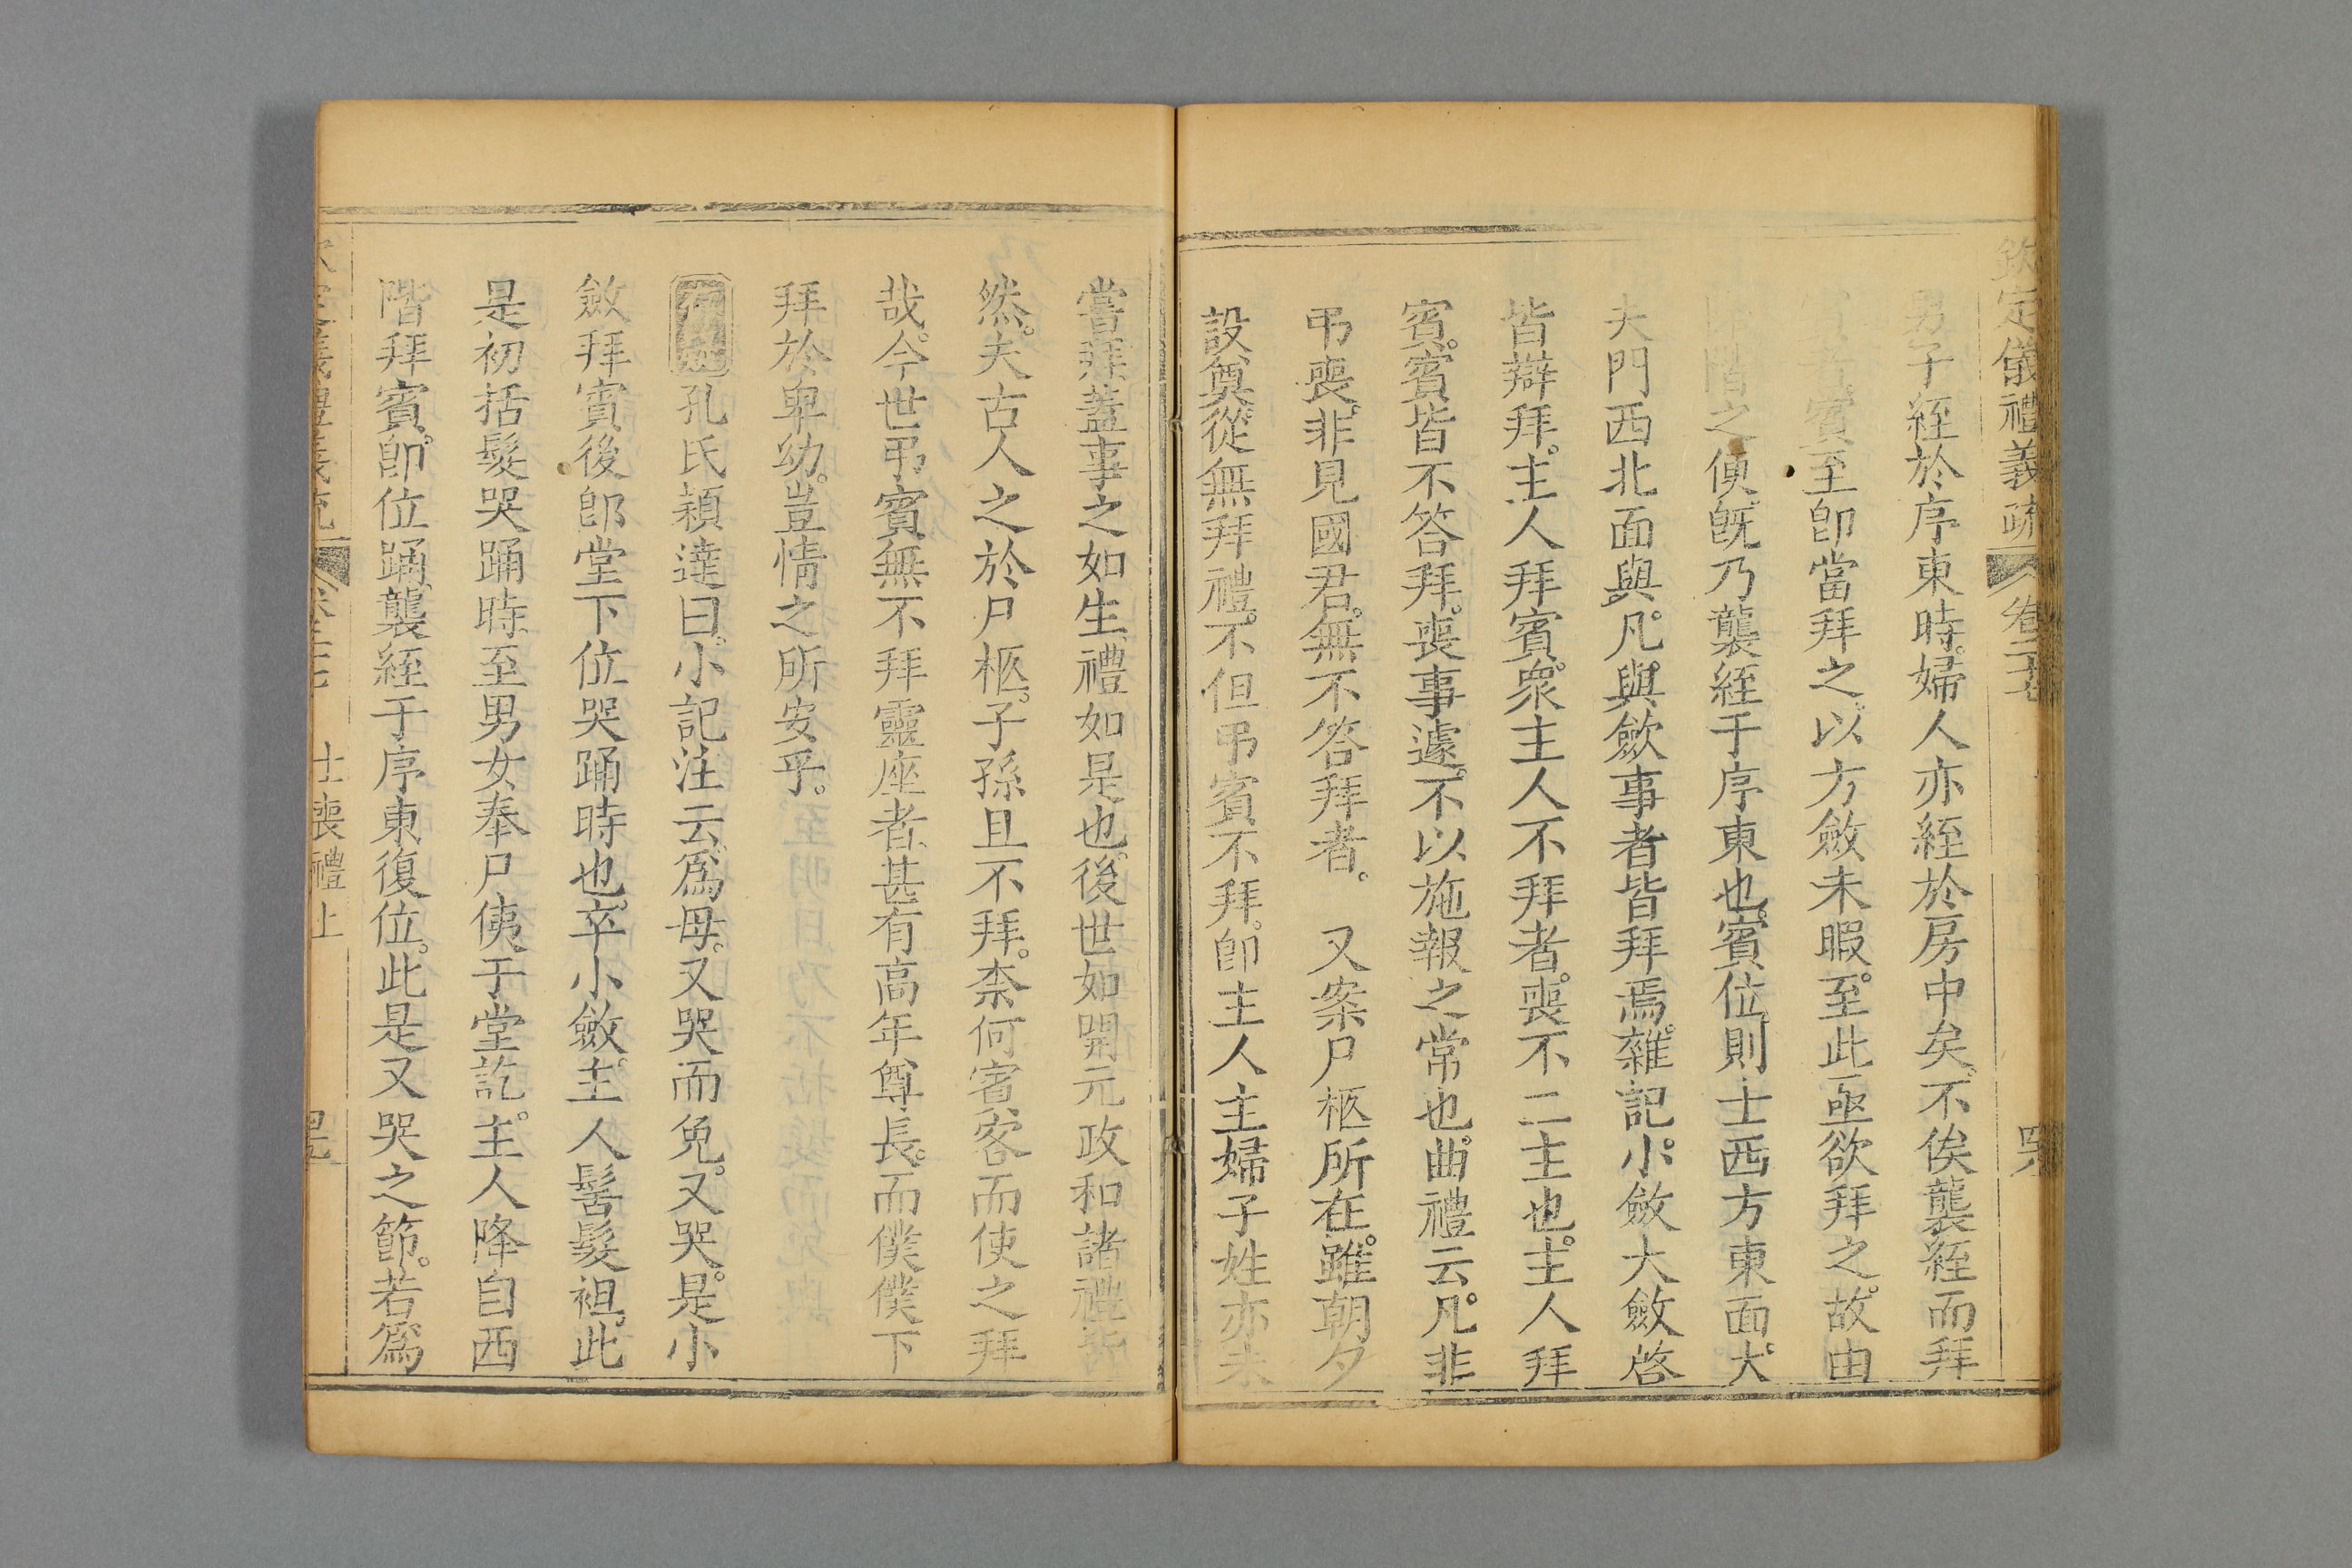 欽定儀禮義疏 卷二十七
男子絰於序東時。婦人亦絰於房中矣。不俟襲絰而拜
賓至卽當拜之。以方斂未暇。至此亟欲拜之。故由
階之便。旣乃襲絰于序東也。賓位。則士西方東面。大
夫門西北面與。凡與斂事者皆拜焉。雜記。小斂大斂啓
皆辯拜。主人拜賓。衆主人不拜者。喪不二主也。主人拜
賓。賓皆不答拜。喪事遽。不以施報之常也。曲禮云。凡非
弔喪。非見國君。無不答拜者。 又案尸柩所在。雖朝夕
設奠。從無拜禮。不但弔賓不拜。卽主人主婦子姓亦未
嘗拜。蓋事之如生。禮如是也。後世如開元政和諸禮皆
然。夫古人之於尸柩。子孫且不拜。柰何賓客而使之拜
哉。今世弔賓無不拜靈座者。甚有高年尊長。而僕僕下
拜於卑幼。豈情之所安乎。
孔氏穎達曰。小記注云。爲母。又哭而免。又哭。是小
斂拜賓後。卽堂下位哭踊時也。卒小斂。主人髺髮袒。此
是初括髮哭踊時。至男女奉尸侇于堂訖。主人降自西
階拜賓。卽位踊。襲絰于序東復位。此是又哭之節。若爲
士喪禮上